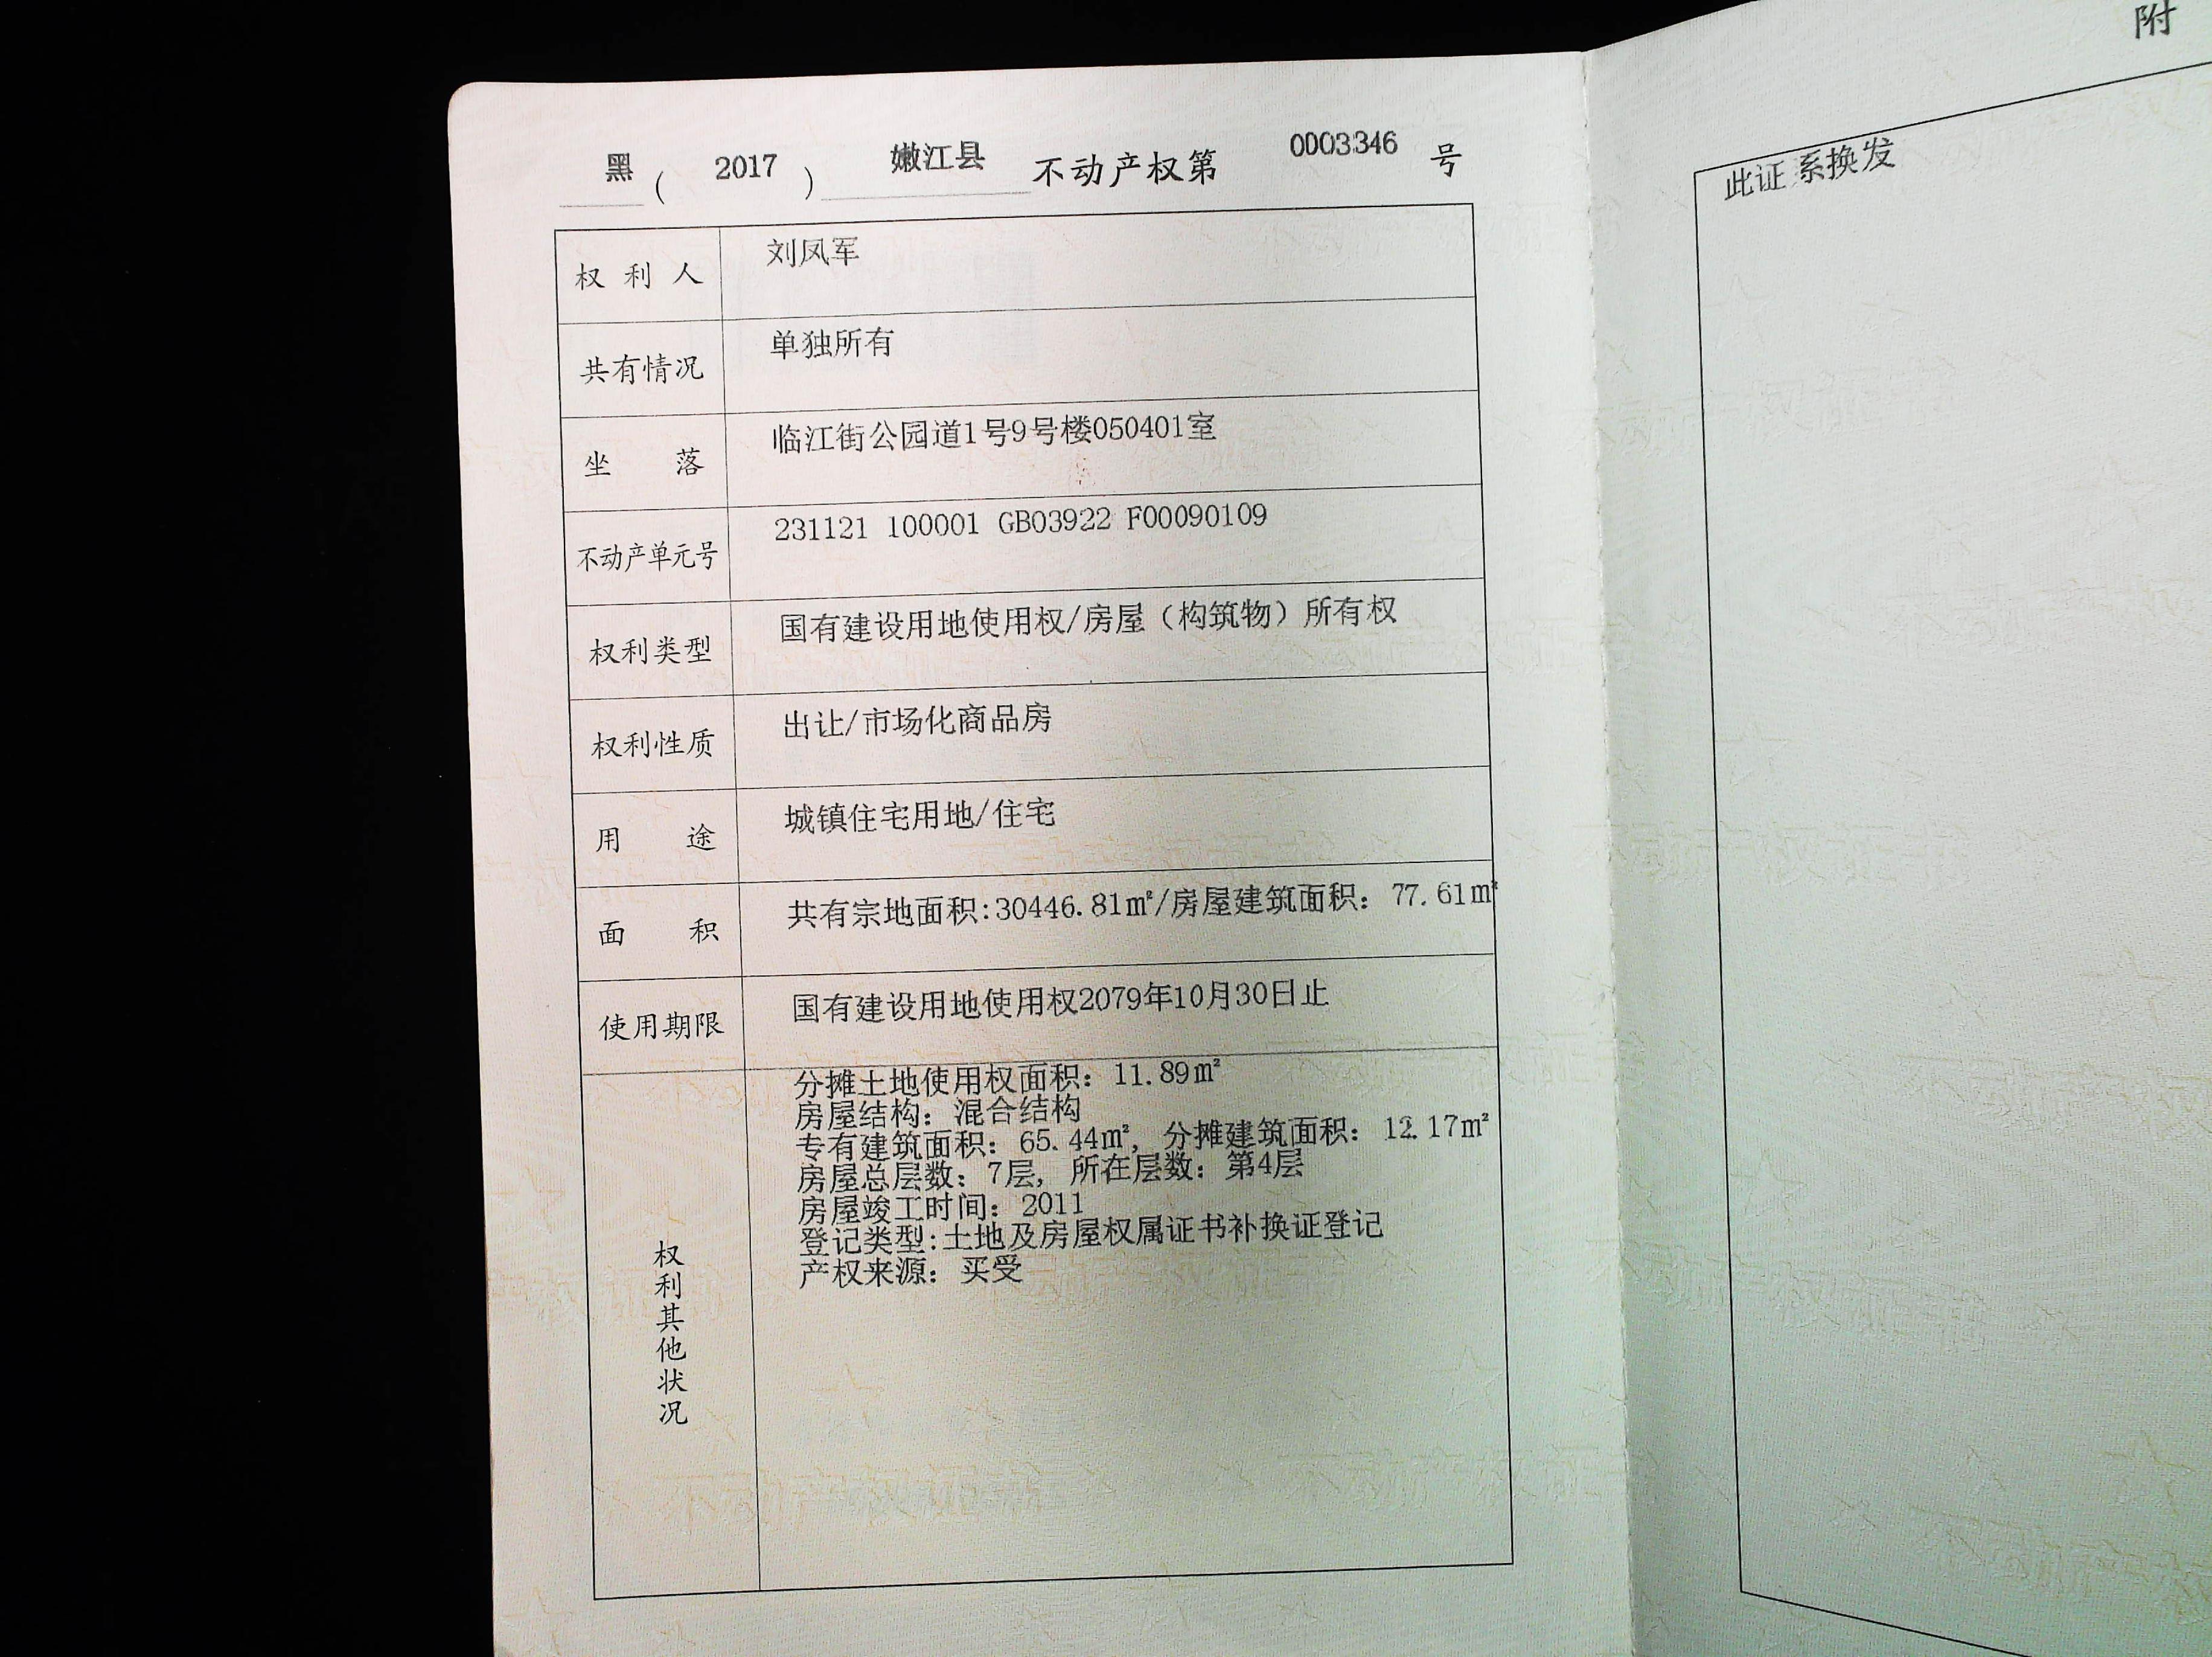 黑 ( 2017 ) 嫩江县 不动产权第 0003346 号
权利人 刘凤军
共有情况 单独所有
坐落 临江街公园道1号9号楼050401室
不动产单元号 231121 100001 GB03922 F00090109
权利类型 国有建设用地使用权/房屋（构筑物）所有权
权利性质 出让/市场化商品房
用途 城镇住宅用地/住宅
面积 共有宗地面积:30446.81㎡/房屋建筑面积：77.61㎡
使用期限 国有建设用地使用权2079年10月30日止
权利其他状况
分摊土地使用权面积：11.89㎡
房屋结构：混合结构
专有建筑面积：65.44㎡，分摊建筑面积：12.17㎡
房屋总层数：7层，所在层数：第4层
房屋竣工时间：2011
登记类型:土地及房屋权属证书补换证登记
产权来源：买受
附
此证系换发